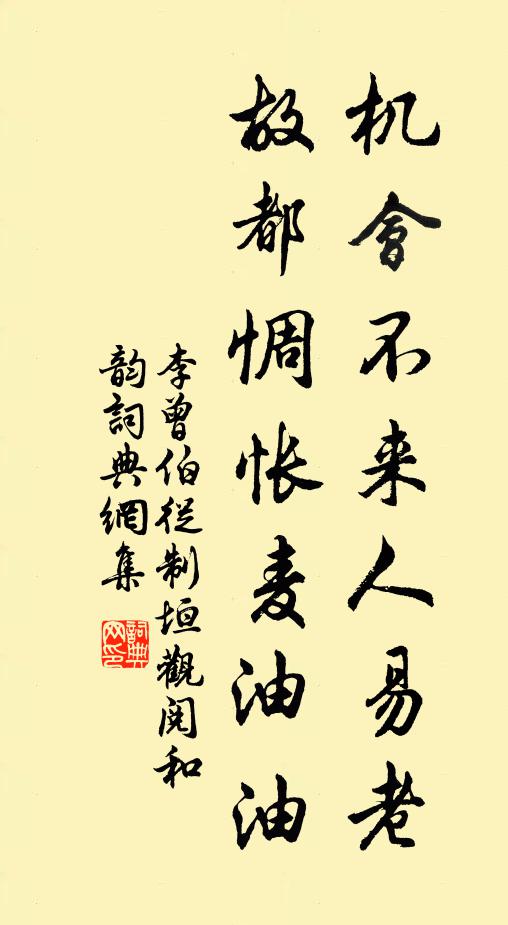 机會不来人易老
故都惆怅麦油油
李曾伯從制垣觀閱和
韵詞典網集
詞典网印